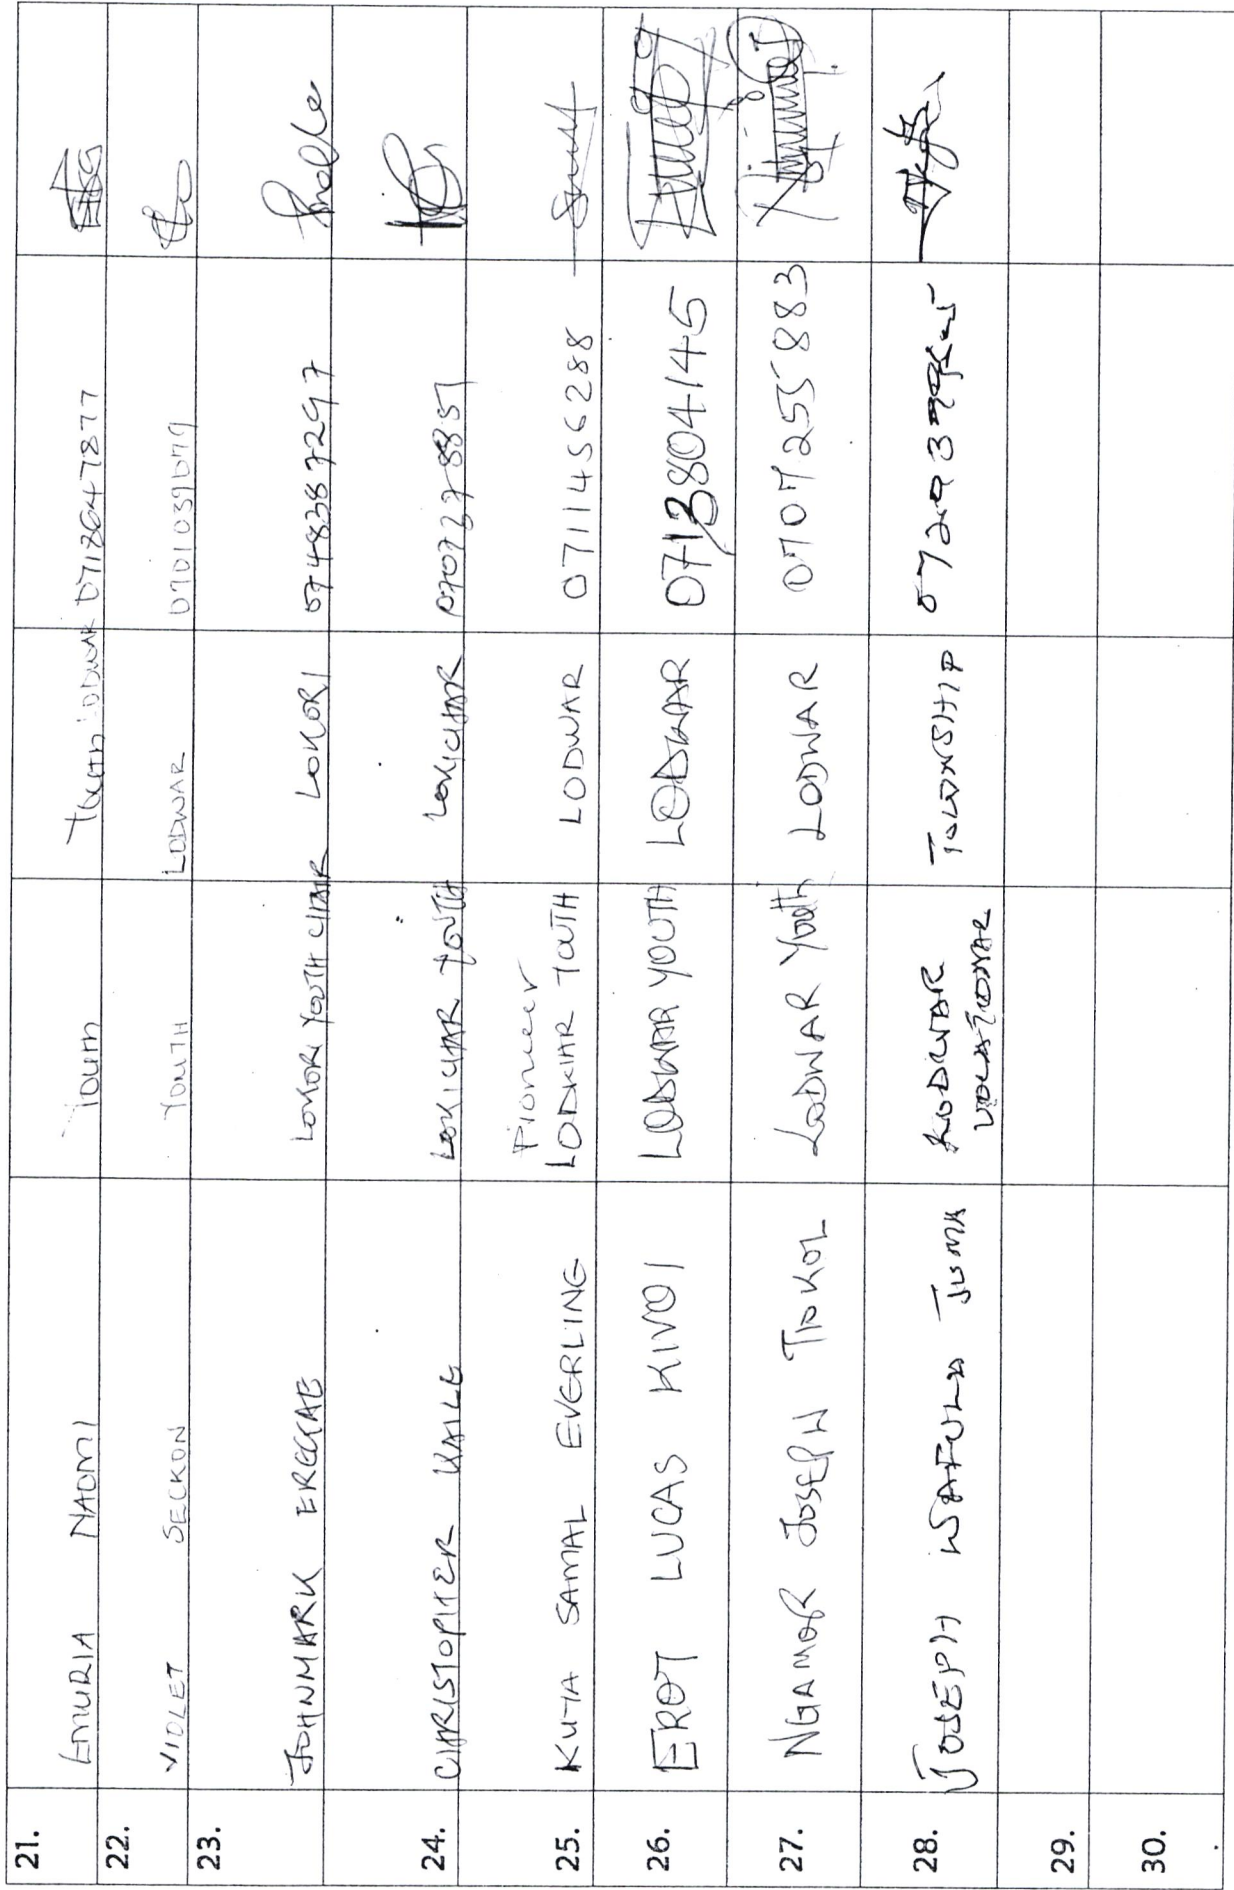 21. EMURIA NAOMI Youth LODWAR
22. VIOLET SECKON YOUTH LODWAR 0701039079
23. JOHNMARK LOKORI YOUTH CHAIR LOKORI 0748387297
24. CHRISTOPHER LOKICHAR YOUTH LOKICHAR
25. KUYA SAMAL EVERLING Pioneer
YOUTH LODWAR 0711456288
26. EROT LUCAS KIVOI LODWAR YOUTH LODWAR 0713804145
27. NGAMOR JOSEPH LODWAR Youth LODWAR 0707255883
28. JOSEPH WAFULA JUMA TOWNSHIP
29.
30.